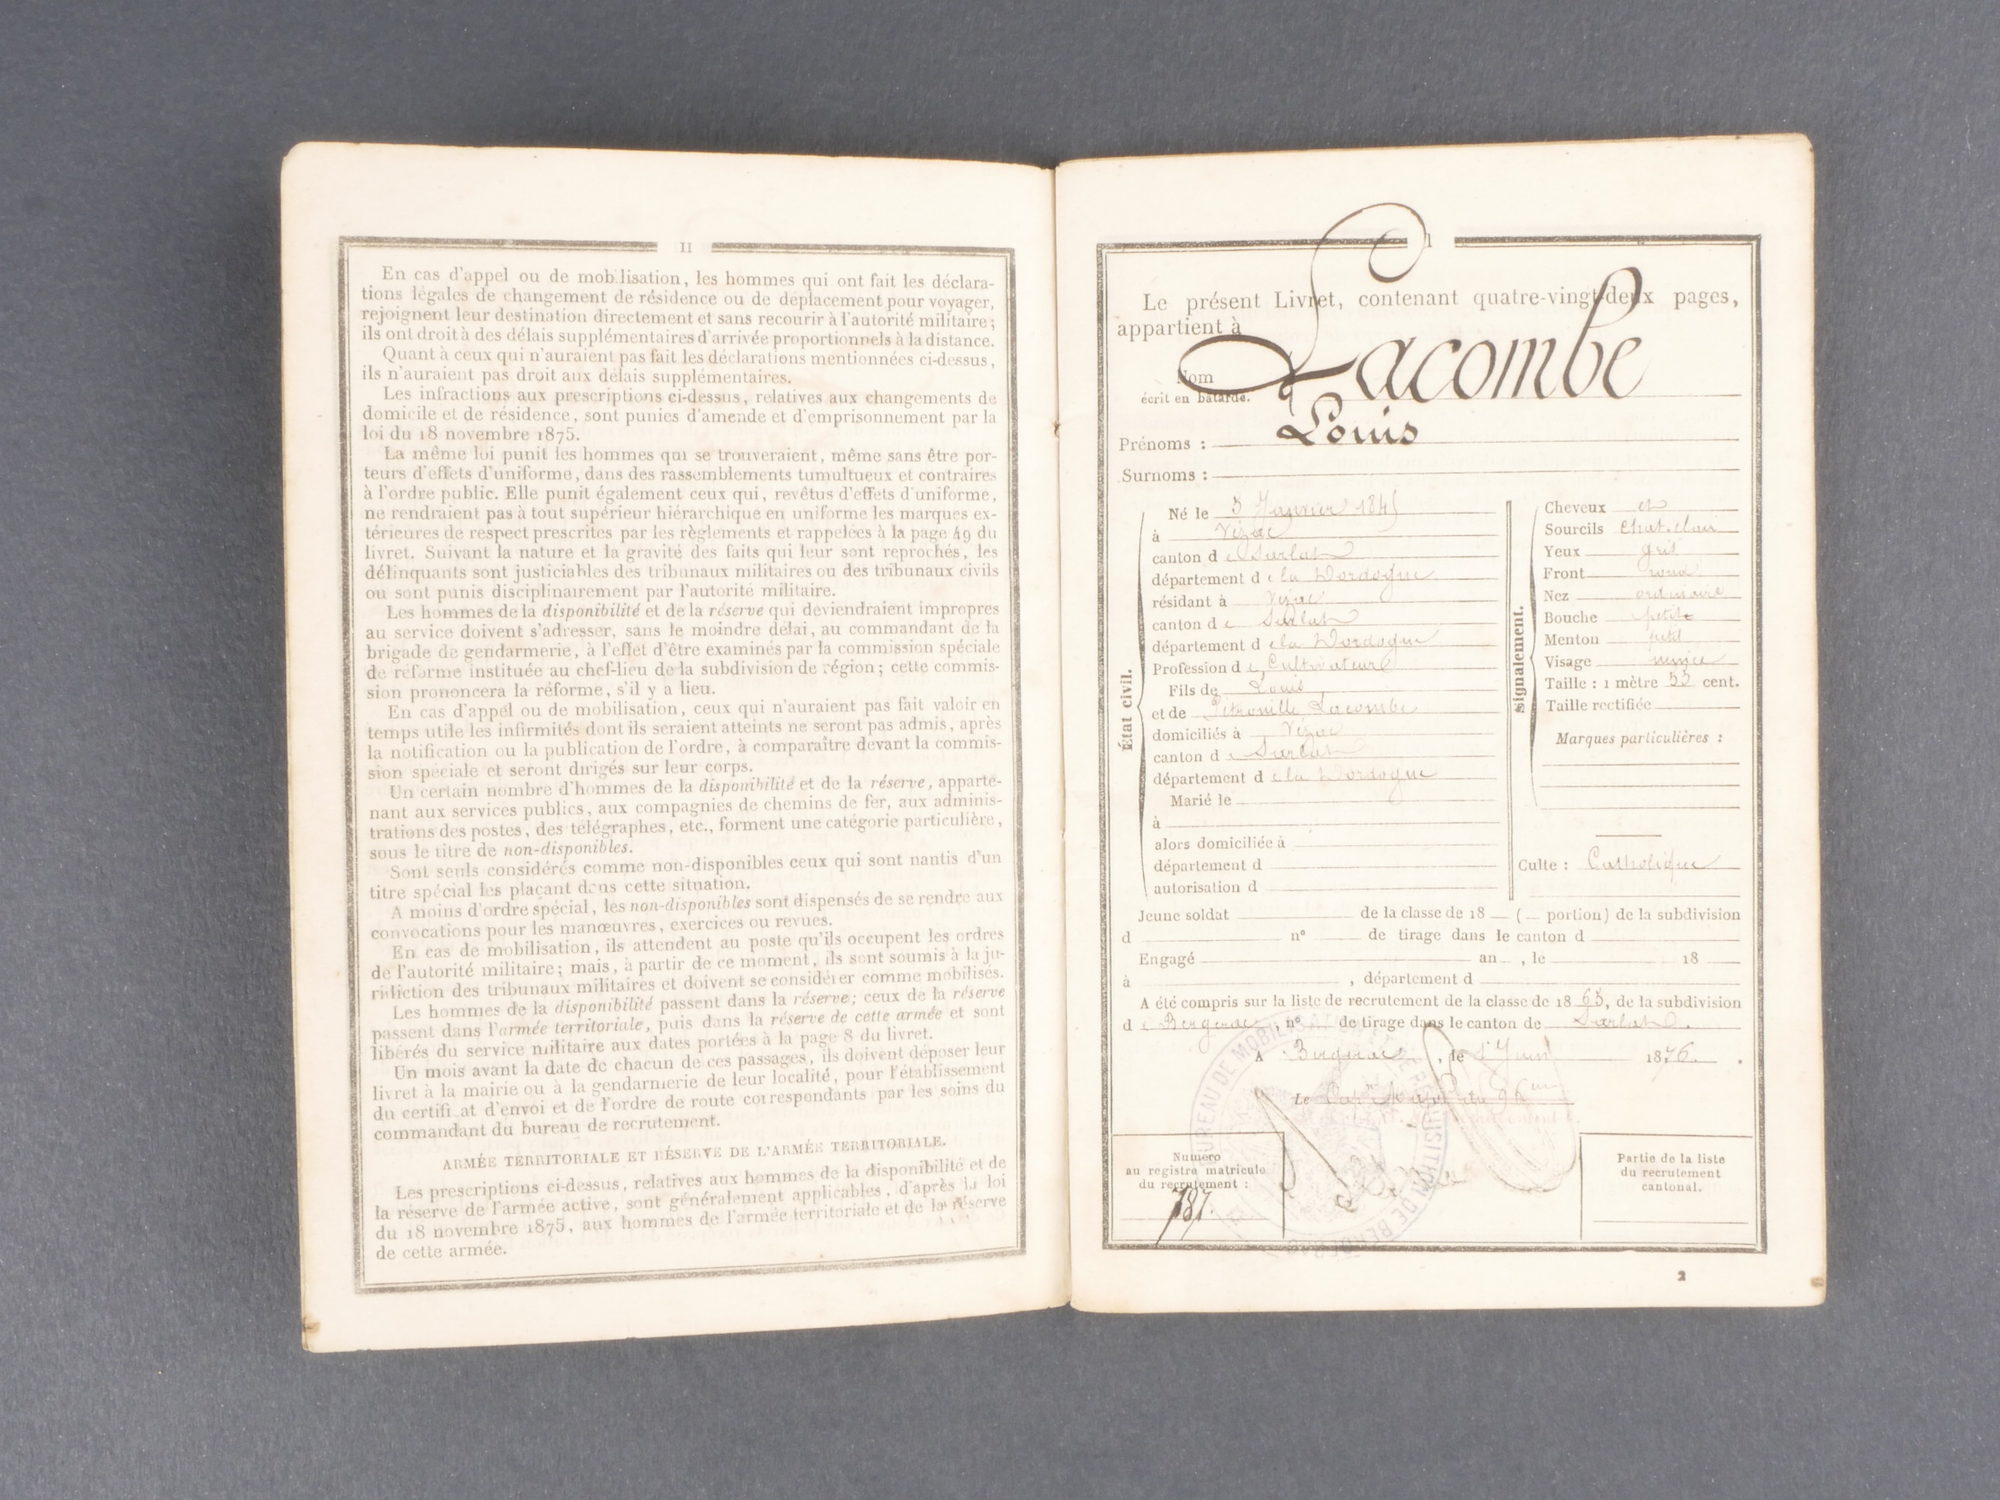 II
En cas d'appel ou de mobilisation, les hommes qui ont fait les déclara-
tions légales de changement de résidence ou de déplacement pour voyager,
rejoignent leur destination directement et sans recourir à l'autorité militaire;
ils ont droit à des délais supplémentaires d'arrivée proportionnels à la distance.
Quant à ceux qui n'auraient pas fait les déclarations mentionnées ci-dessus,
ils n'auraient pas droit aux délais supplémentaires.
Les infractions aux prescriptions ci-dessus, relatives aux changements de
domicile et de résidence, sont punies d'amende et d'emprisonnement par la
loi du 18 novembre 1875.
La même loi punit les hommes qui se trouveraient, même sans être por-
teurs d'effets d'uniforme, dans des rassemblements tumultueux et contraires
à l'ordre public. Elle punit également ceux qui, revêtus d'effets d'uniforme,
ne rendraient pas à tout supérieur hiérarchique en uniforme les marques ex-
térieures de respect prescrites par les règlements et rappelées à la page 49 du
livret. Suivant la nature et la gravité des faits qui leur sont reprochés, les
délinquants sont justiciables des tribunaux militaires ou des tribunaux civils
ou sont punis disciplinairement par l'autorité militaire.
Les hommes de la disponibilité et de la réserve qui deviendraient impropres
au service doivent s'adresser, sans le moindre délai, au commandant de la
brigade de gendarmerie, à l'effet d'être examinés par la commission spéciale
de réforme instituée au chef-lieu de la subdivision de région; cette commis-
sion prononcera la réforme, s'il y a lieu.
En cas d'appel ou de mobilisation, ceux qui n'auraient pas fait valoir en
temps utile les infirmités dont ils seraient atteints ne seront pas admis, après
la notification ou la publication de l'ordre, à comparaître devant la commis-
sion spéciale et seront dirigés sur leur corps.
Un certain nombre d'hommes de la disponibilité et de la réserve, apparte-
nant aux services publics, aux compagnies de chemins de fer, aux adminis-
trations des postes, des télégraphes, etc., forment une catégorie particulière,
sous le titre de non-disponibles.
Sont seuls considérés comme non-disponibles ceux qui sont nantis d'un
titre spécial les plaçant dans cette situation.
A moins d'ordre spécial, les non-disponibles sont dispensés de se rendre aux
convocations pour les manœuvres, exercices ou revues.
En cas de mobilisation, ils attendent au poste qu'ils occupent les ordres
de l'autorité militaire; mais, à partir de ce moment, ils sont soumis à la ju-
ridiction des tribunaux militaires et doivent se considérer comme mobilisés.
Les hommes de la disponibilité passent dans la réserve; ceux de la réserve
passent dans l'armée territoriale, puis dans la réserve de cette armée et sont
libérés du service militaire aux dates portées à la page 8 du livret.
Un mois avant la date de chacun de ces passages, ils doivent déposer leur
livret à la mairie ou à la gendarmerie de leur localité, pour l'établissement
du certifi at d'envoi et de l'ordre de route correspondants par les soins du
commandant du bureau de recrutement.
ARMÉE TERRITORIALE ET RÉSERVE DE L'ARMÉE TERRITORIALE.
Les prescriptions ci-dessus, relatives aux hommes de la disponibilité et de
la réserve de l'armée active, sont généralement applicables, d'après la loi
du 18 novembre 1875, aux hommes de l'armée territoriale et de la réserve
de cette armée.
1
Le présent Livret, contenant quatre-vingt-deux pages,
appartient à
Nom Lacombe
écrit en bâtarde.
Prénoms : Louis
Surnoms :
État civil.
Né le 5 Janvier 1845
à Vézac
canton de Sarlat
département de la Dordogne
résidant à Vézac
canton de Sarlat
département de la Dordogne
Profession de Cultivateur
Fils de Louis
et de Pétronille Lacombe
domiciliés à Vézac
canton de Sarlat
département de la Dordogne
Marié le
à
alors domiciliée à
département d
autorisation d
Signalement.
Cheveux et
Sourcils chat. clair
Yeux gris
Front rond
Nez ordinaire
Bouche petite
Menton petit
Visage mince
Taille : 1 mètre 53 cent.
Taille rectifiée
Marques particulières :
Culte : Catholique
Jeune soldat de la classe de 18 ( portion) de la subdivision
d n° de tirage dans le canton d
Engagé an , le 18
à , département d
A été compris sur la liste de recrutement de la classe de 1865, de la subdivision
de Bergerac, n° de tirage dans le canton de Sarlat.
A Bergerac, le 1er Juin 1876.
Le
BUREAU DE MOBILISATION ET DE RÉQUISITION DE BERGERAC
Numéro
au registre matricule
du recrutement :
787.
Partie de la liste
du recrutement
cantonal.
2